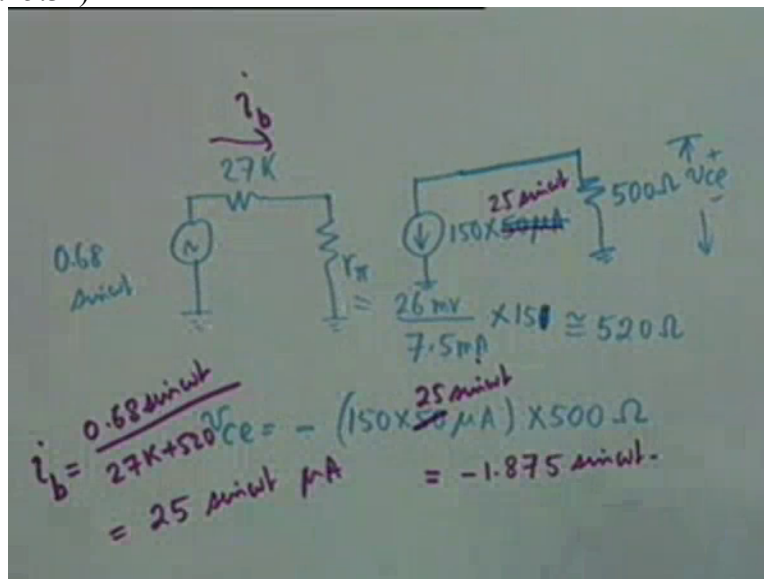 i_b
27K
0.68 sinωt
25 sinωt
150×50μA
500Ω
+
v_ce
-
r_π
= 26 mV / 7.5mA × 151 ≅ 520Ω
i_b = 0.68 sinωt / 27K+520
= 25 sinωt μA
25 sinωt
v_ce = - (150×50 μA) × 500 Ω
= -1.875 sinωt.